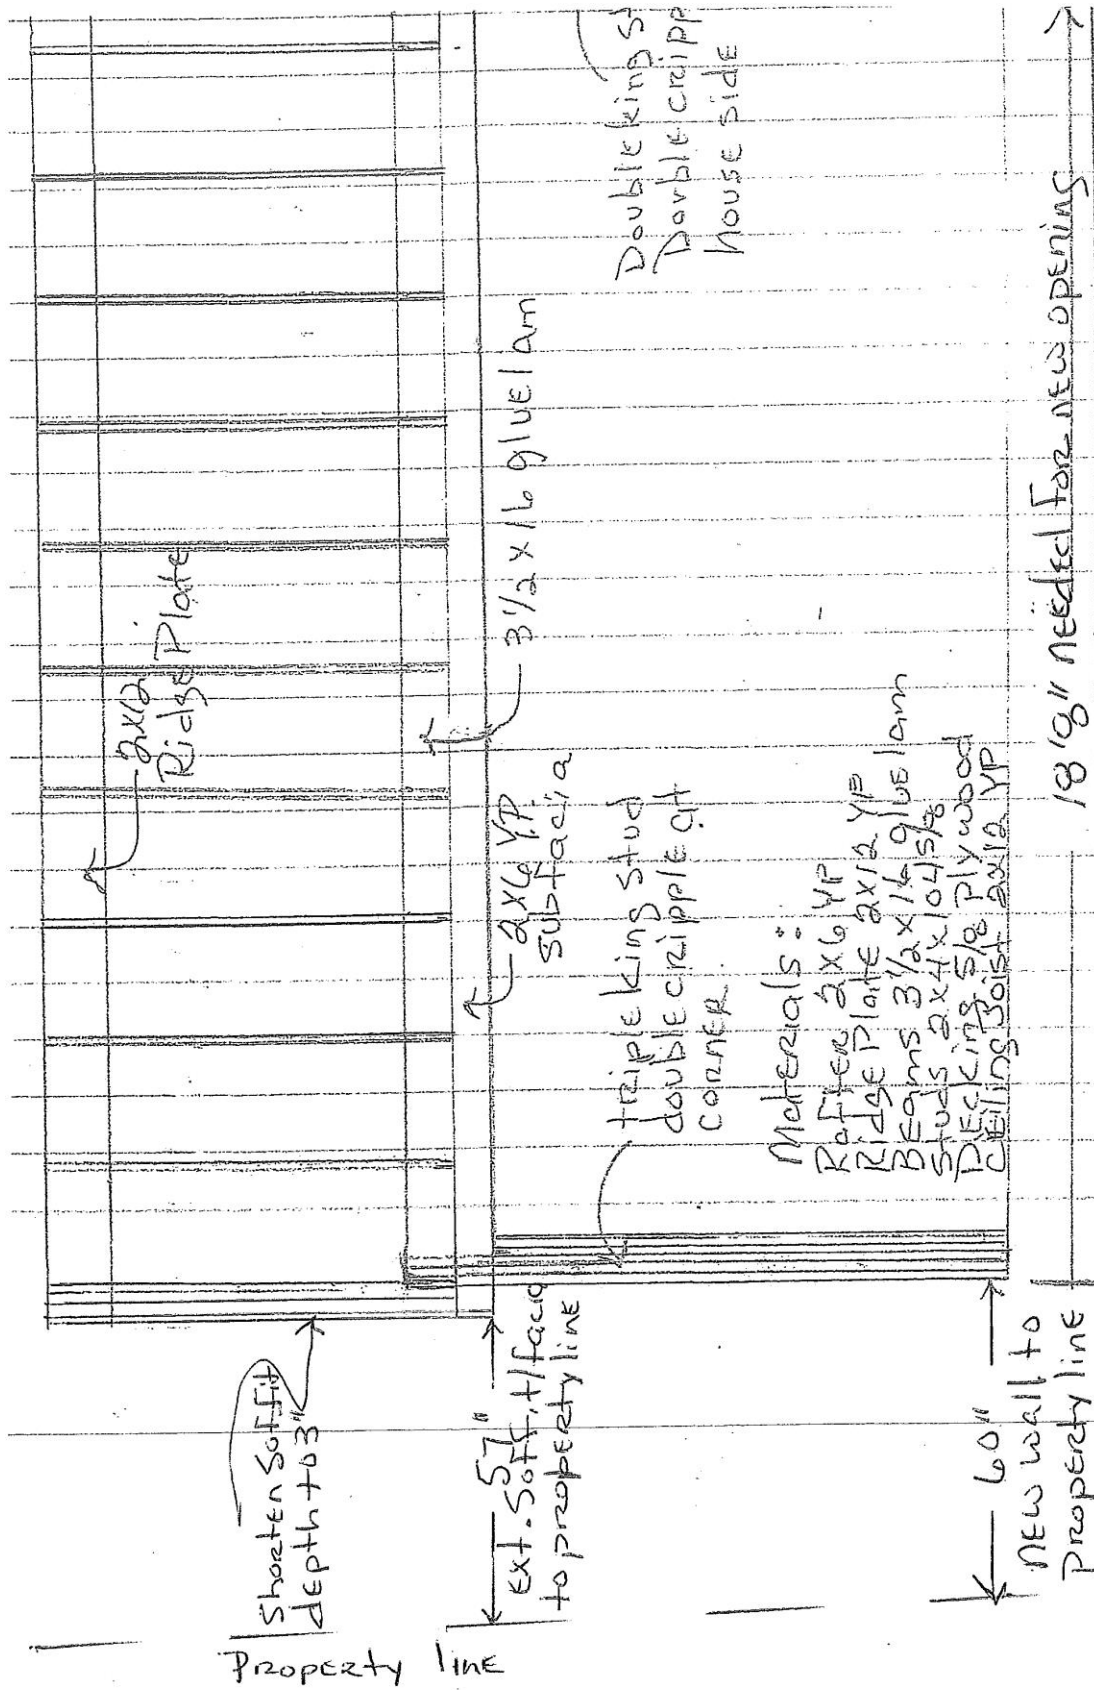 2x12
Ridge Plate
Double king s
Double cripp
house side
3 1/2 x 16 gluelam
2x6 YP
subfacia
triple king stud
double cripple at
corner
Materials:
Rafter 2x6 YP
Ridge Plate 2x12 YP
Beams 3 1/2 x 16 gluelam
Studs 2x4x104 5/8
Decking 5/8 plywood
Ceiling Joist 2x12 YP
18'8" needed for new opening
Shorten Soffit
depth to 3"
57"
ext. Soffit/facia
to property line
60"
new wall to
property line
Property line